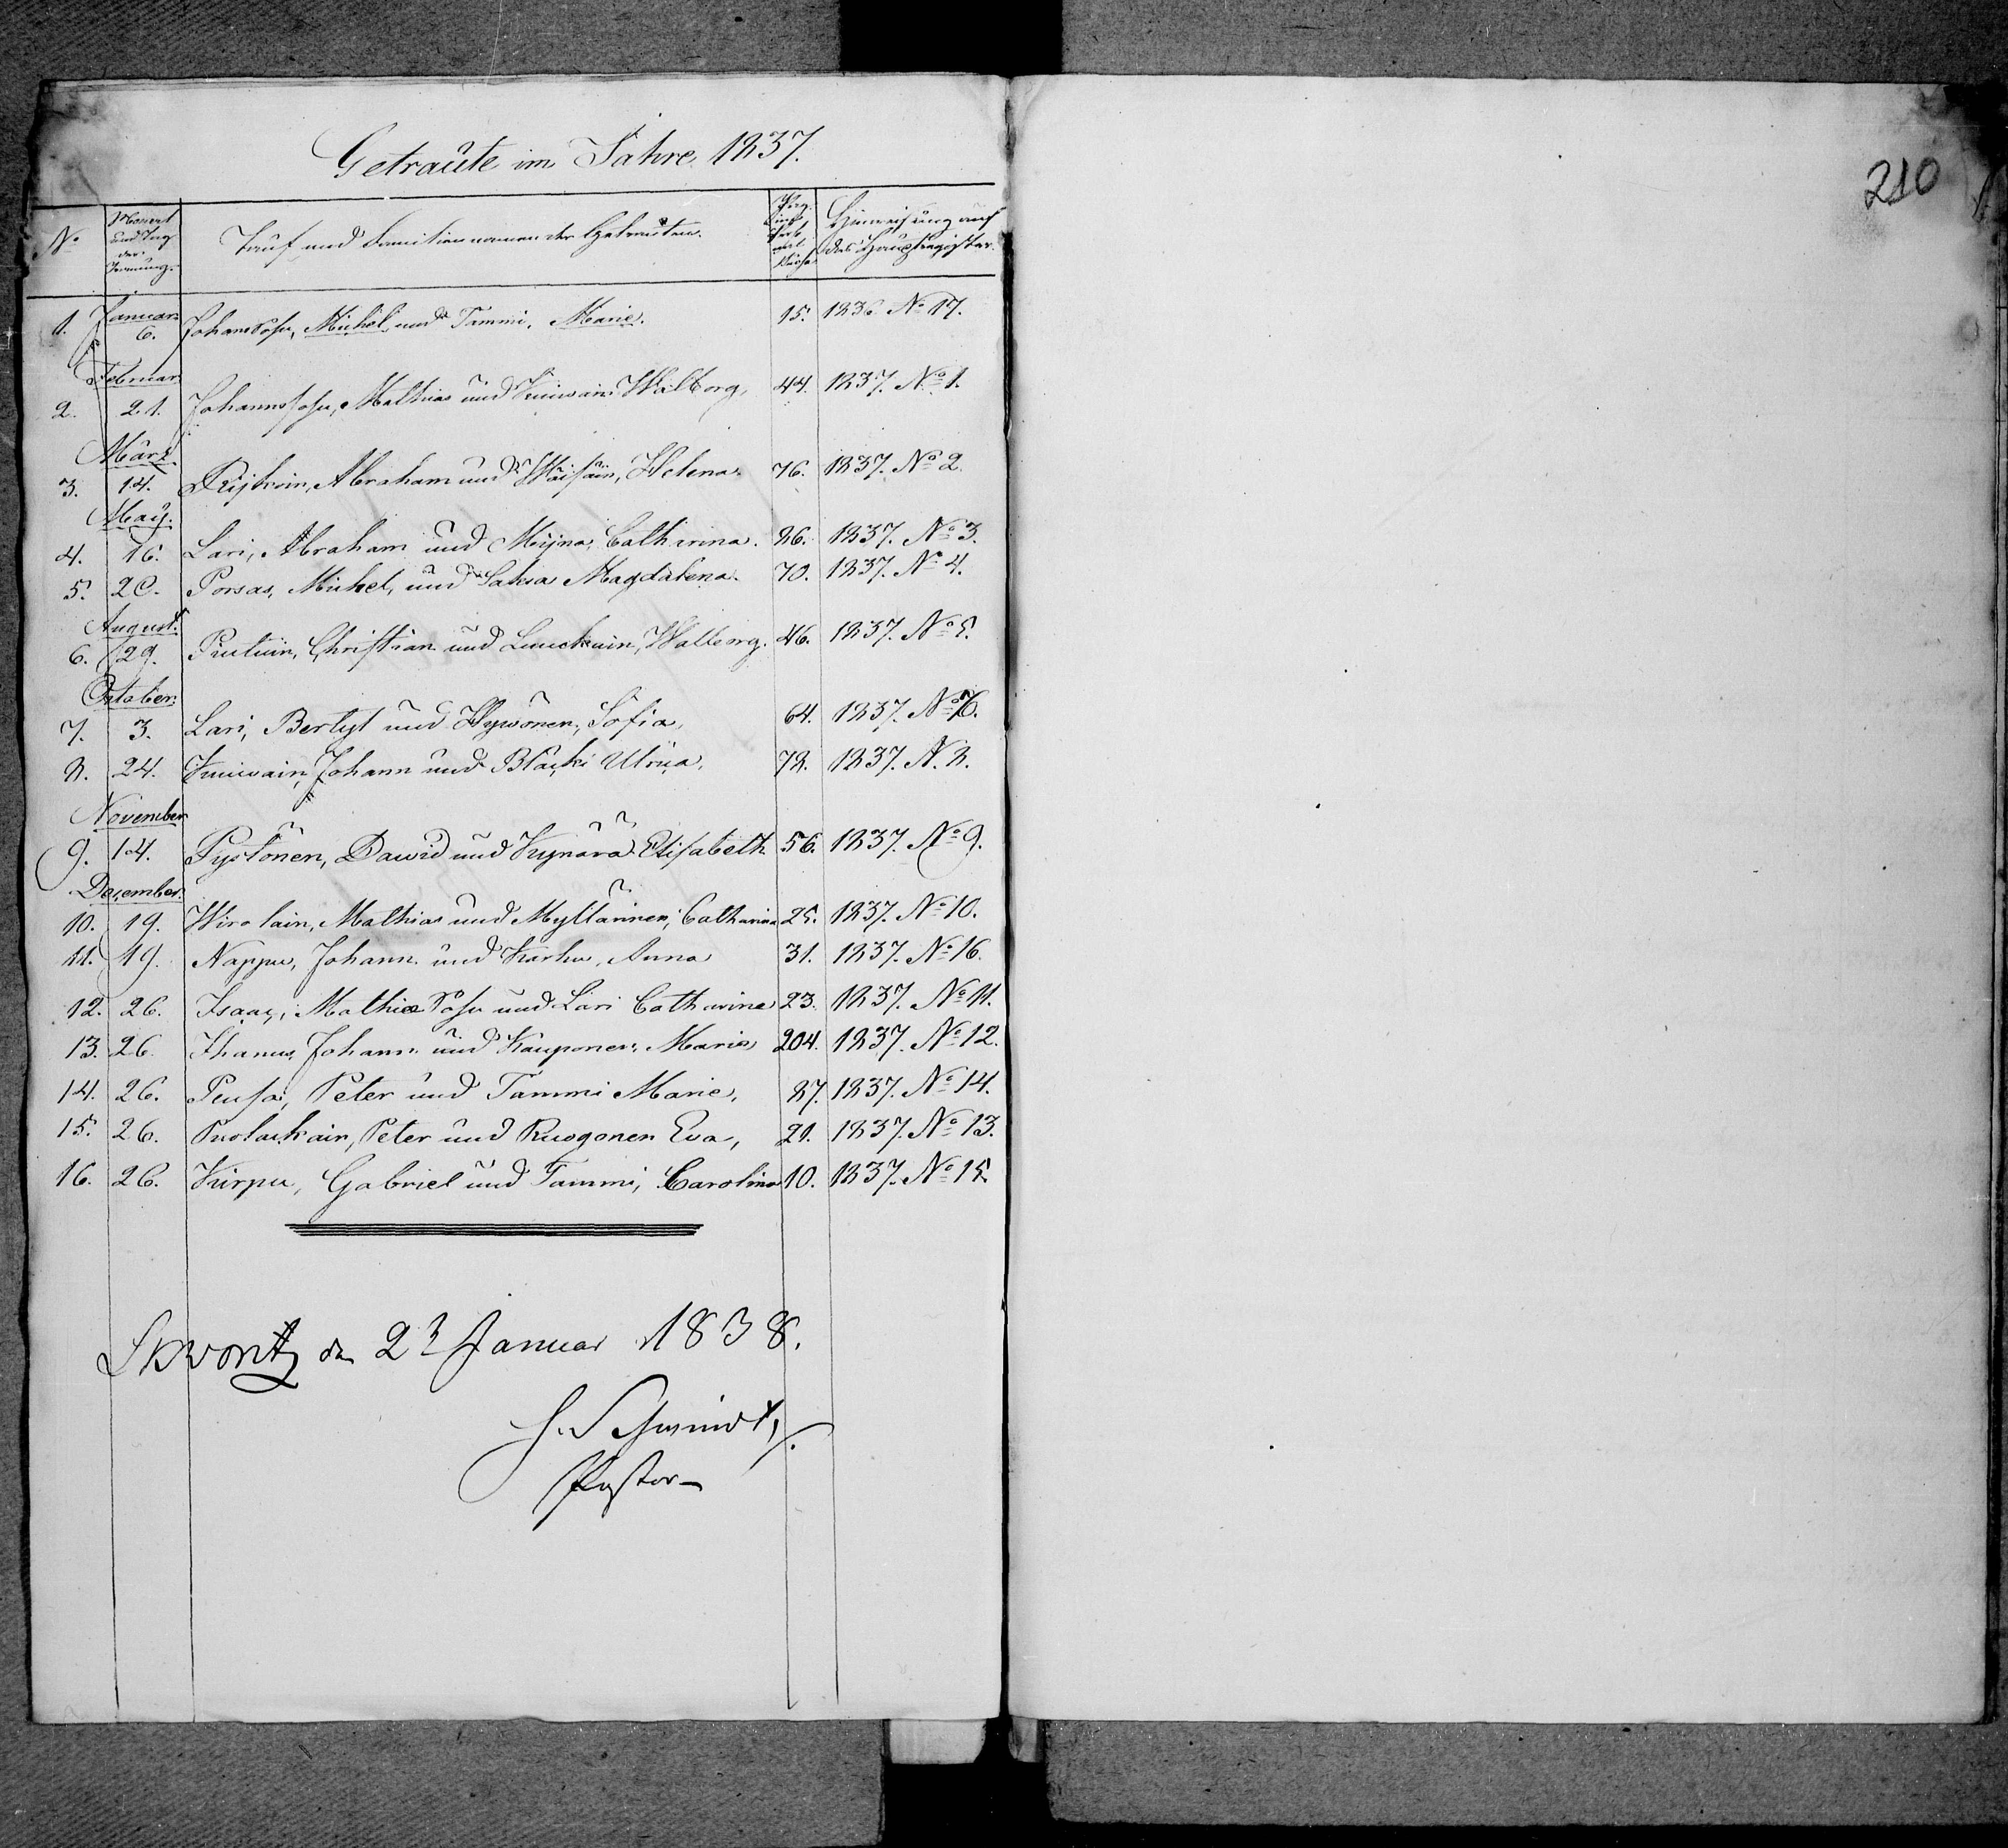 Getraute im Jahre 1837.
No Monat und Tag der Trauung. Tauf und Familien namen der Getrauten. Hinweisung auf das Hauptregister.
Januar
1. 6. Johanssohn, Michel und Tammi, Marie. 15. 1836 No 17.
Februar
2. 21. Johannssohn, Mathias und Walborg, 44. 1837. No 1.
März
3. 14. Abraham und Helena. 76. 1837. No 2.
May.
4. 16. Lari, Abraham und Mÿna, Catharina. 86. 1837. No 3.
5. 20. Porsas, Michel, und Saksa Magdalena. 70. 1837. No 4.
August.
6. 29. Christian und Walborg. 46. 1837. No 5.
October.
7. 3. Lari, und Hÿwönen, Sofia, 64. 1837. No
8. 24. Johann und Ulrica, 78. 1837. N. 8.
November
9. 14. Pystönen, Dawid und Elisabeth 56. 1837. No 9.
December.
10. 19. Wirolain, Mathias und Myllärinen, Catharina 25. 1837. No 10.
11. 19. Nappu, Johann und Karhu, Anna 31. 1837. No 16.
12. 26. Isaac, Mathias Sohn und Lari Catharina 23. 1837. No 11.
13. 26. Ihanus, Johann und Kauponen, Maria 204. 1837. No 12.
14. 26. Peusa, Peter und Tammi Marie, 87. 1837. No 14.
15. 26. Puolackain, Peter und Ruogonen Eva, 21. 1837. No 13.
16. 26. Kirpu, Gabriel und Tammi, Carolina 10. 1837. No 15.
Skworitz den 23 Januar 1838.
Schmidt,
Pastor
210